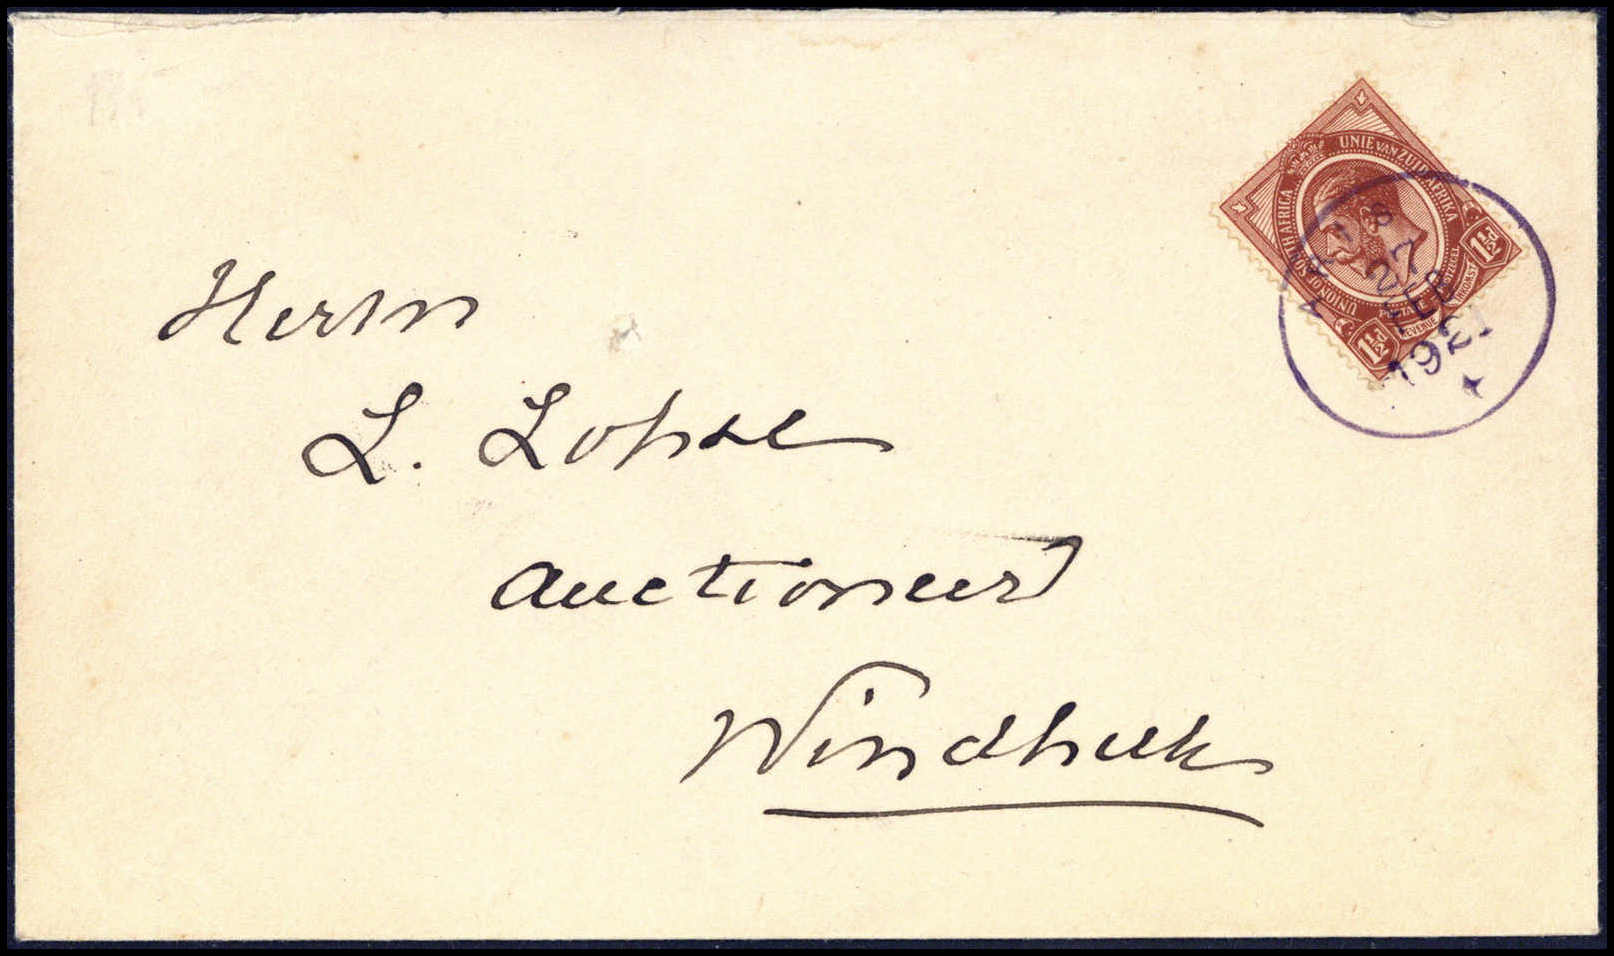 UNION OF SOUTH AFRICA UNIE VAN ZUID AFRIKA
POSTAGE REVENUE
1½d 1½d
27
FEB
1921
Herrn
L. Lohse
Auctioneer
Windhuk